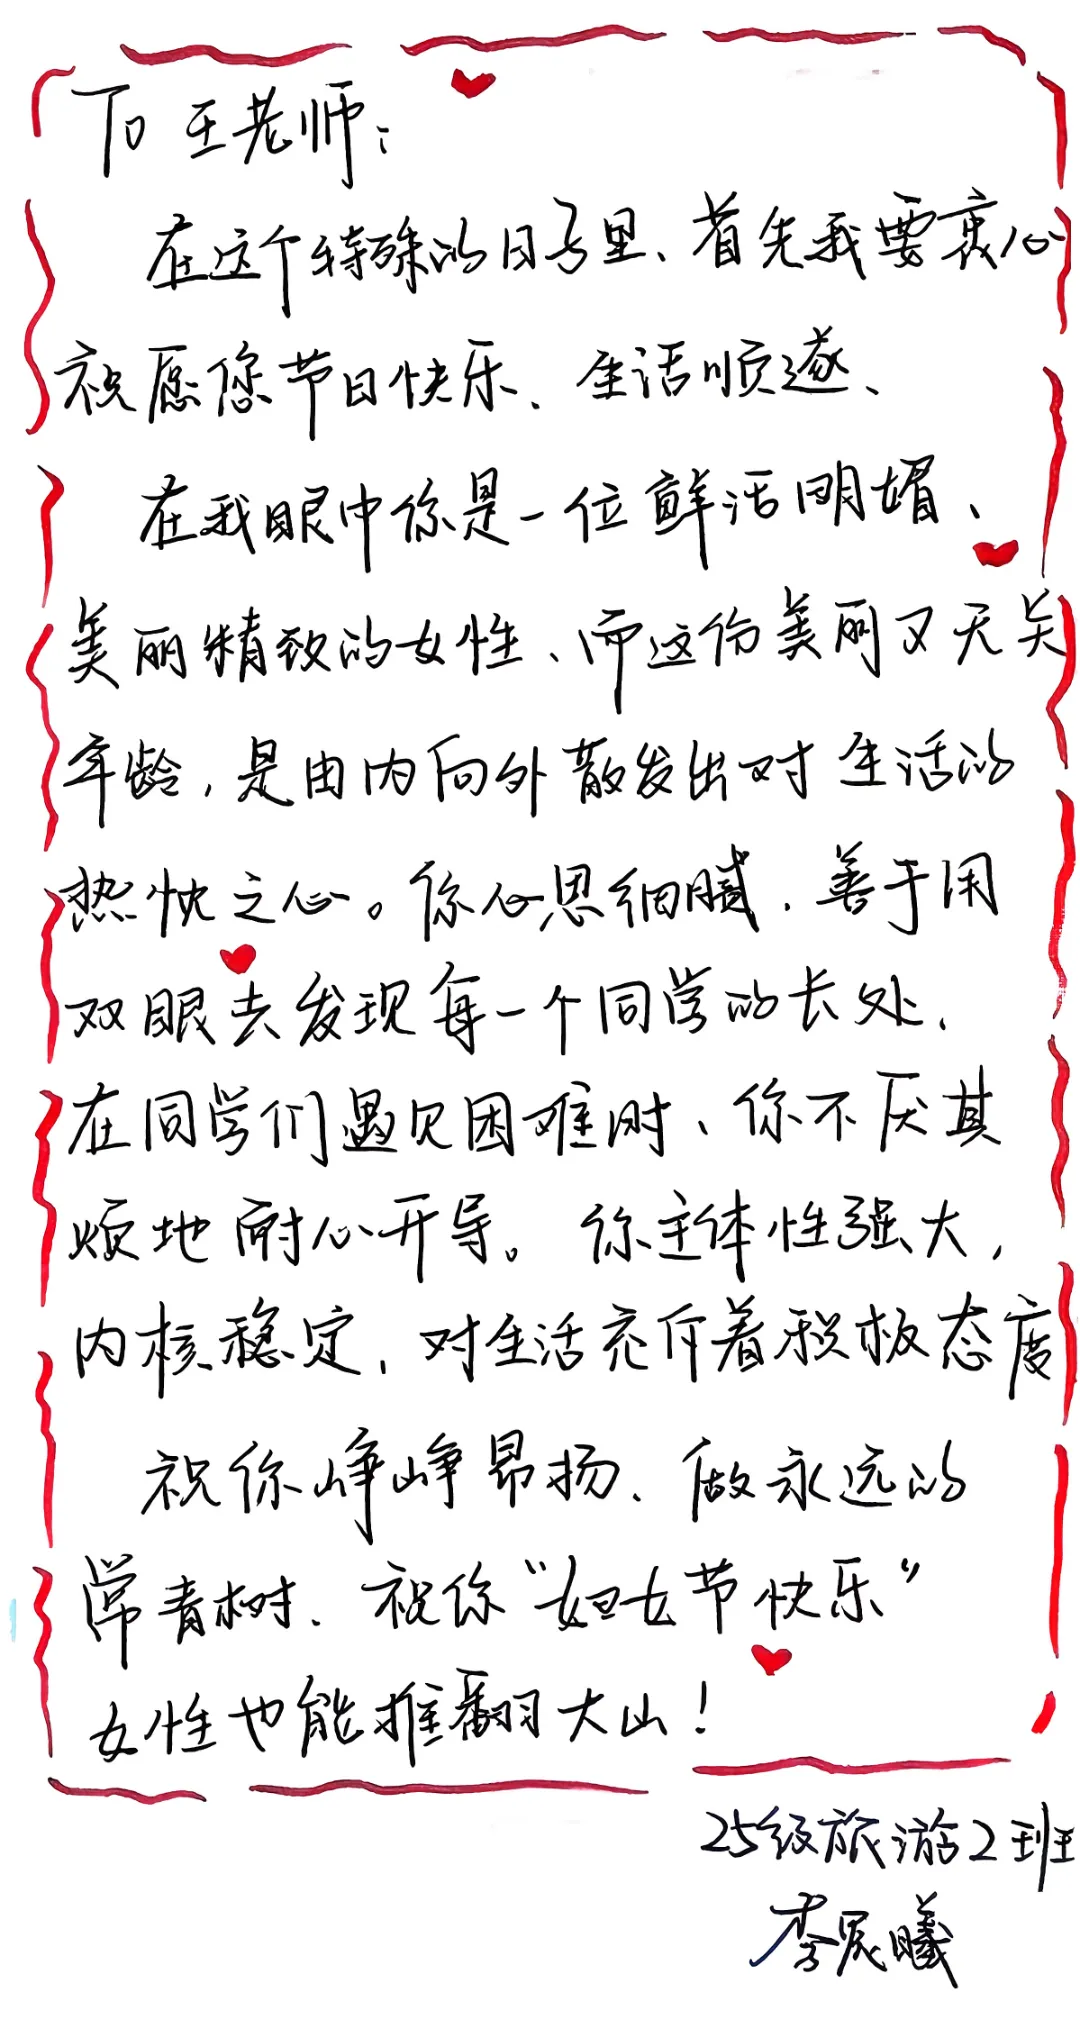 To 王老师：
在这个特殊的日号里、首先我要衷心
祝愿您节日快乐、生活顺遂、
在我眼中你是一位鲜活明媚、
美丽精致的女性、而这份美丽又无关
年龄，是由内向外散发出对生活的
热忱之心。你心思细腻，善于用
双眼去发现每一个同学的长处，
在同学们遇见困难时、你不厌其
烦地耐心开导。你主体性强大，
内核稳定，对生活充斥着积极态度
祝你峥峥昂扬、做永远的
常青树、祝你“妇女节快乐”
女性也能推翻大山！
25级旅游2班
李晨曦